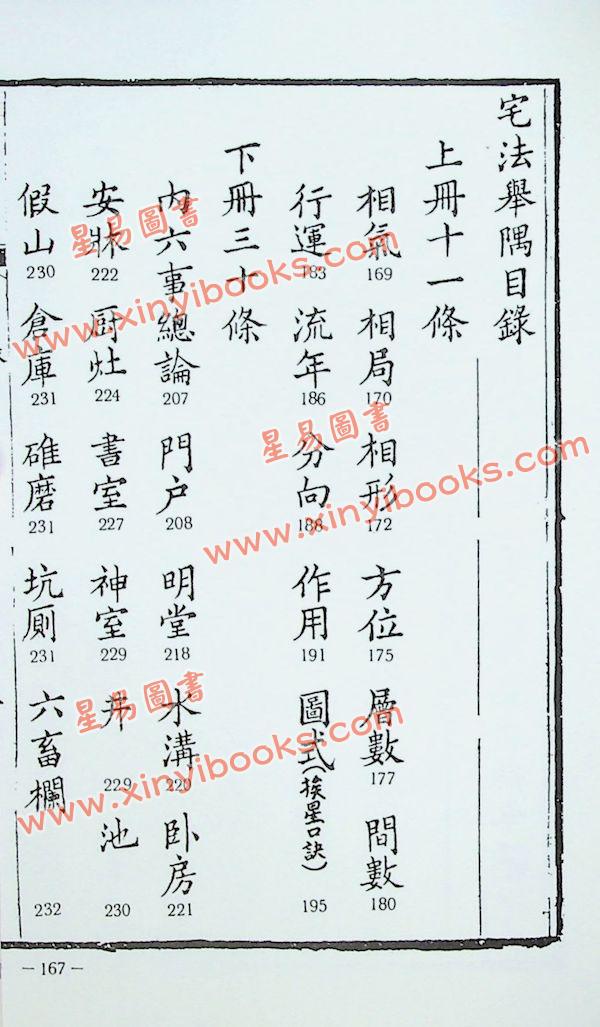 宅法舉隅目錄
上冊十一條
相氣169 相局170 相形172 方位175 層數177 間數180
行運183 流年186 分向188 作用191 圖式(挨星口訣)195
下冊三十條
內六事總論207 門户208 明堂218 水溝220 卧房221
安牀222 厨灶224 書室227 神室229 井229 池230
假山230 倉庫231 碓磨231 坑厠231 六畜欄232
— 167 —
星易圖書
www.xinyibooks.com
星易圖書
www.xinyibooks.com
星易圖書
www.xinyibooks.com